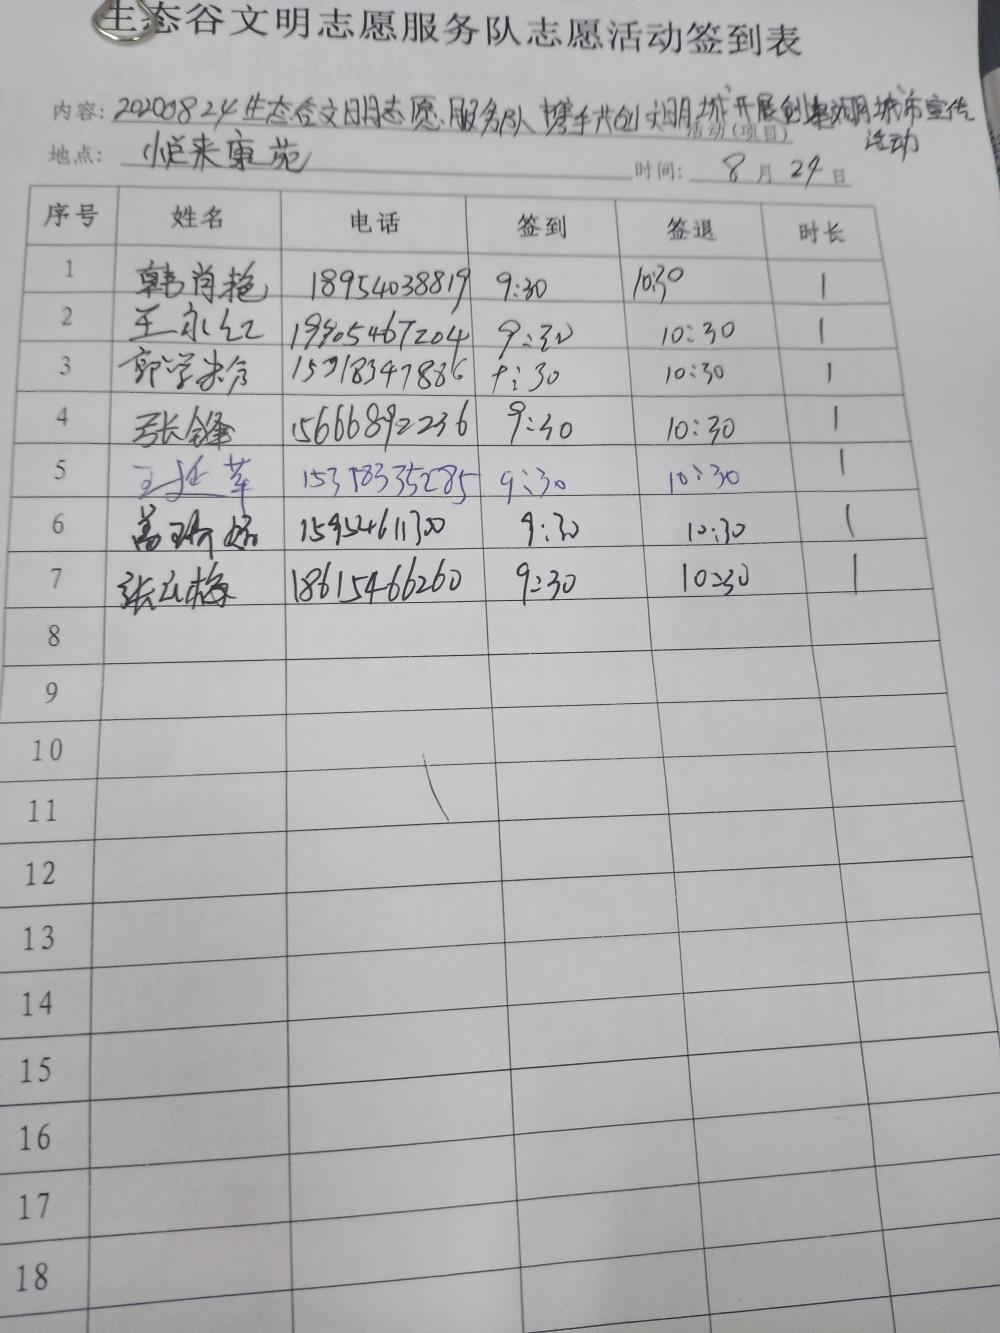 生态谷文明志愿服务队志愿活动签到表
内容: 20200824生态谷文明志愿服务队"携手共创文明城"开展创建文明城市宣传活动 活动(项目)
地点: 悦来康苑 时间: 8月24日
序号 姓名 电话 签到 签退 时长
1 韩肖艳 18954038819 9:30 10:30 1
2 王永红 19905467204 9:30 10:30 1
3 郭学 9:30 10:30 1
4 张锋 15666892236 9:30 10:30 1
5 王延苹 15318335285 9:30 10:30 1
6 15954611300 9:30 10:30 1
7 张梅 18615466260 9:30 10:30 1
8
9
10
11
12
13
14
15
16
17
18